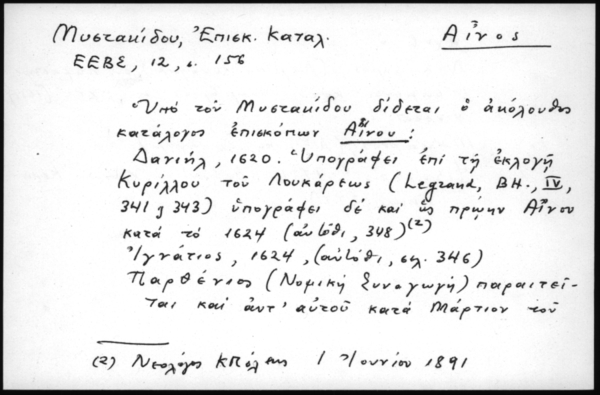 Μυστακίδου, Ἐπισκ. Καταλ.
Αἶνος
ΕΕΒΣ, 12, σ. 156
Ὑπὸ τοῦ Μυστακίδου δίδεται ὁ ἀκόλουθος
κατάλογος ἐπισκόπων Αἴνου:
Δανιήλ, 1620. Ὑπογράφει ἐπὶ τῇ ἐκλογῇ
Κυρίλλου τοῦ Λουκάρεως (Legrand, BH., IV,
341 343) ὑπογράφει δὲ καὶ ὡς πρώην Αἴνου
κατὰ τὸ 1624 (αὐτόθι, 348)(2)
Ἰγνάτιος, 1624, (αὐτόθι, σελ. 346)
Παρθένιος (Νομικὴ Συναγωγὴ) παραιτεῖ-
ται καὶ ἀντ' αὐτοῦ κατὰ Μάρτιον τοῦ
(2) Νεολόγος ΚΠόλεως 1 Ἰουνίου 1891